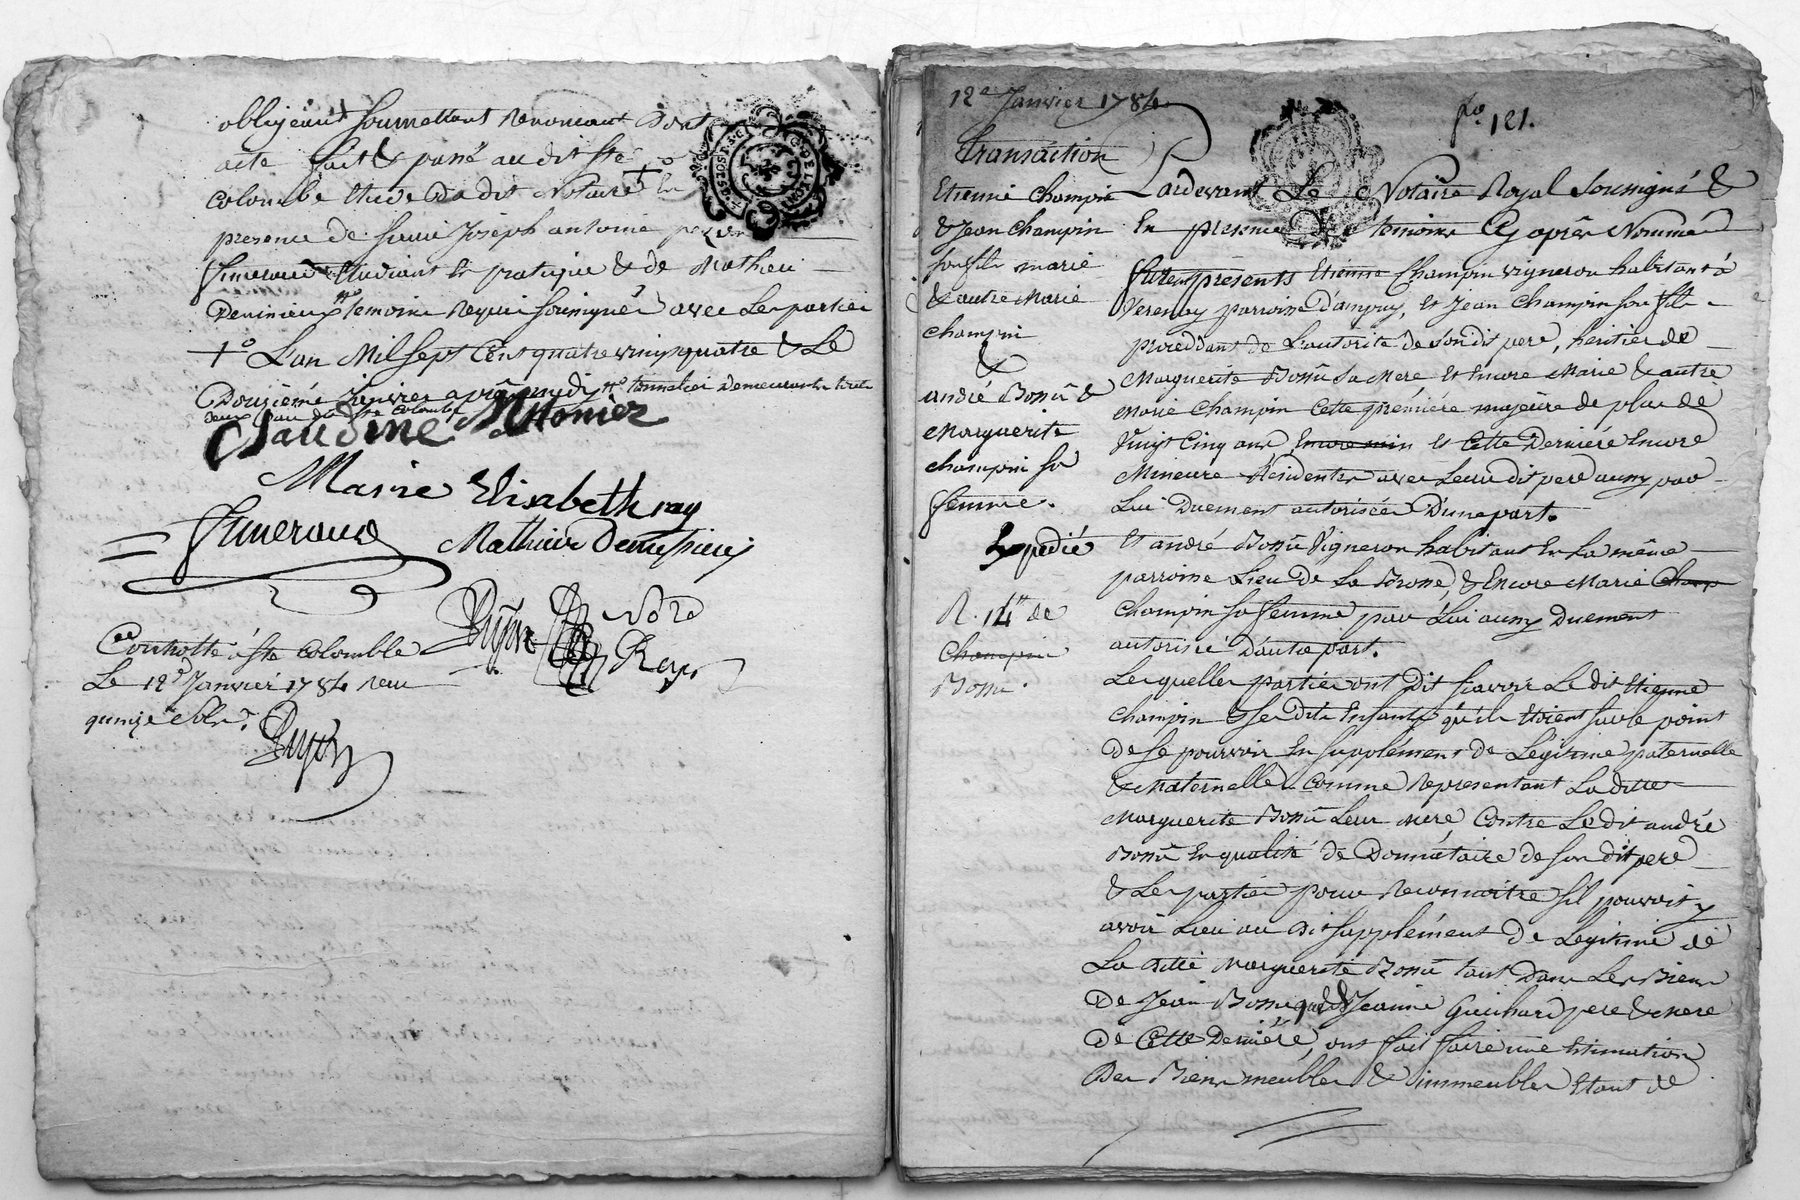 obligeant soumettant renonceant Dont
acte fait & passé au dit Ste
colombe Etude Du dit Notaire + En
presence de sieur Joseph antoine
fimeraud Etudiant En pratique & de Mathieu
temoins Requis soussignés avec Les parties
+ L'an Mil sept Cent quatre vingt quatre & Le
Douzieme janvier après midy tonnelier Demeurants tous
deux au dit Ste Colombe
Claudine Monier
Marie Elisabeth ray
fimeraud
Mathieu
Nore
Roy
Controllé à Ste Colombe
Le 12e Janvier 1784 reçu
quinze sols
12e Janvier 1784
fo 121.
transaction
Etienne champin
& Jean champin
son fils marie
& autre Marie
champin
&
andré Bonû &
Marguerite
champin sa
femme.
Expedié
R. 14tt de
Champin
Bonû.
Pardevant Le Notaire Royal soussigné &
En presence De temoins Cy après Nommés
furent présents Etienne Champin vigneron habitant à
Verenay parroisse D'ampuy, Et Jean Champin son fils
procedant de L'autorité de son dit pere, heritier de
Marguerite Bonû sa Mere Et Encore Marie & autre
Marie Champin Cette première majeure de plus de
Vingt Cinq ans, Encore min Et Cette Derniere Encore
Mineure Residentes avec Leur dit pere aussy par
Lui Duement autorisées D'une part.
Et andré Bonû Vigneron habitant En La même
parroisse Lieu De La Brosse, & Encore Marie Champ
Champin sa femme par Lui aussy Duement
autorisée D'autre part.
Lesquelles parties ont Dit sçavoir Le dit Etienne
Champin & ses dits Enfants qu'ils Etoient sur le point
De se pourvoir En supplément de Légitime paternelle
& Maternelle Comme Representant La ditte
Marguerite Bonû Leur Mere Contre Le dit andré
Bonû En qualité de Donnataire de son dit pere
& Les parties pour Reconnoitre s'il pouvoit y
avoir Lieu au dit supplément De Légitime de
La ditte Marguerite Bonû tant Dans Les Biens
De Jean Bonû que de Jeanne Guichard pere & Mere
De Cette Derniere, ont fait faire une Estimation
Des Biens meubles & immeubles Etant de